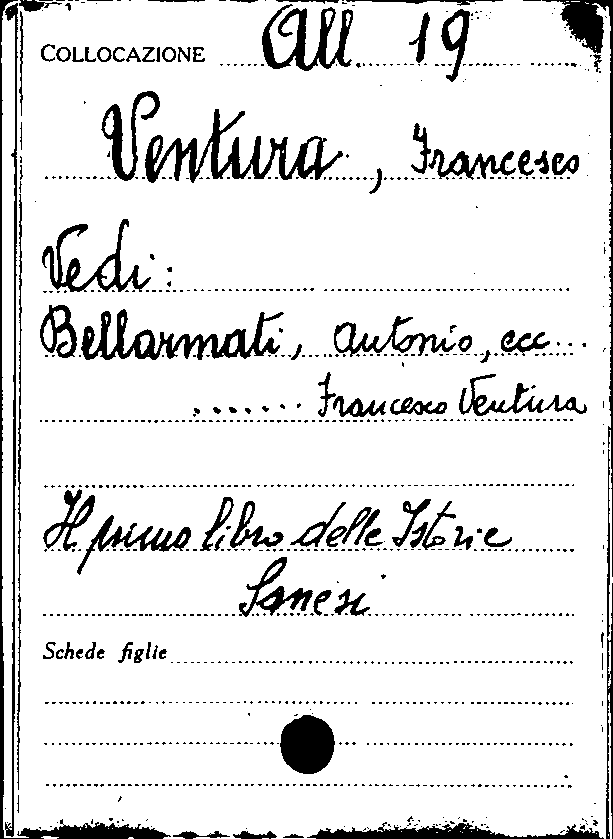 COLLOCAZIONE All 19
Ventura, Francesco
Vedi:
Bellarmati, Antonio, ecc...
....... Francesco Ventura
Il primo libro delle Istorie
Sanesi
Schede figlie